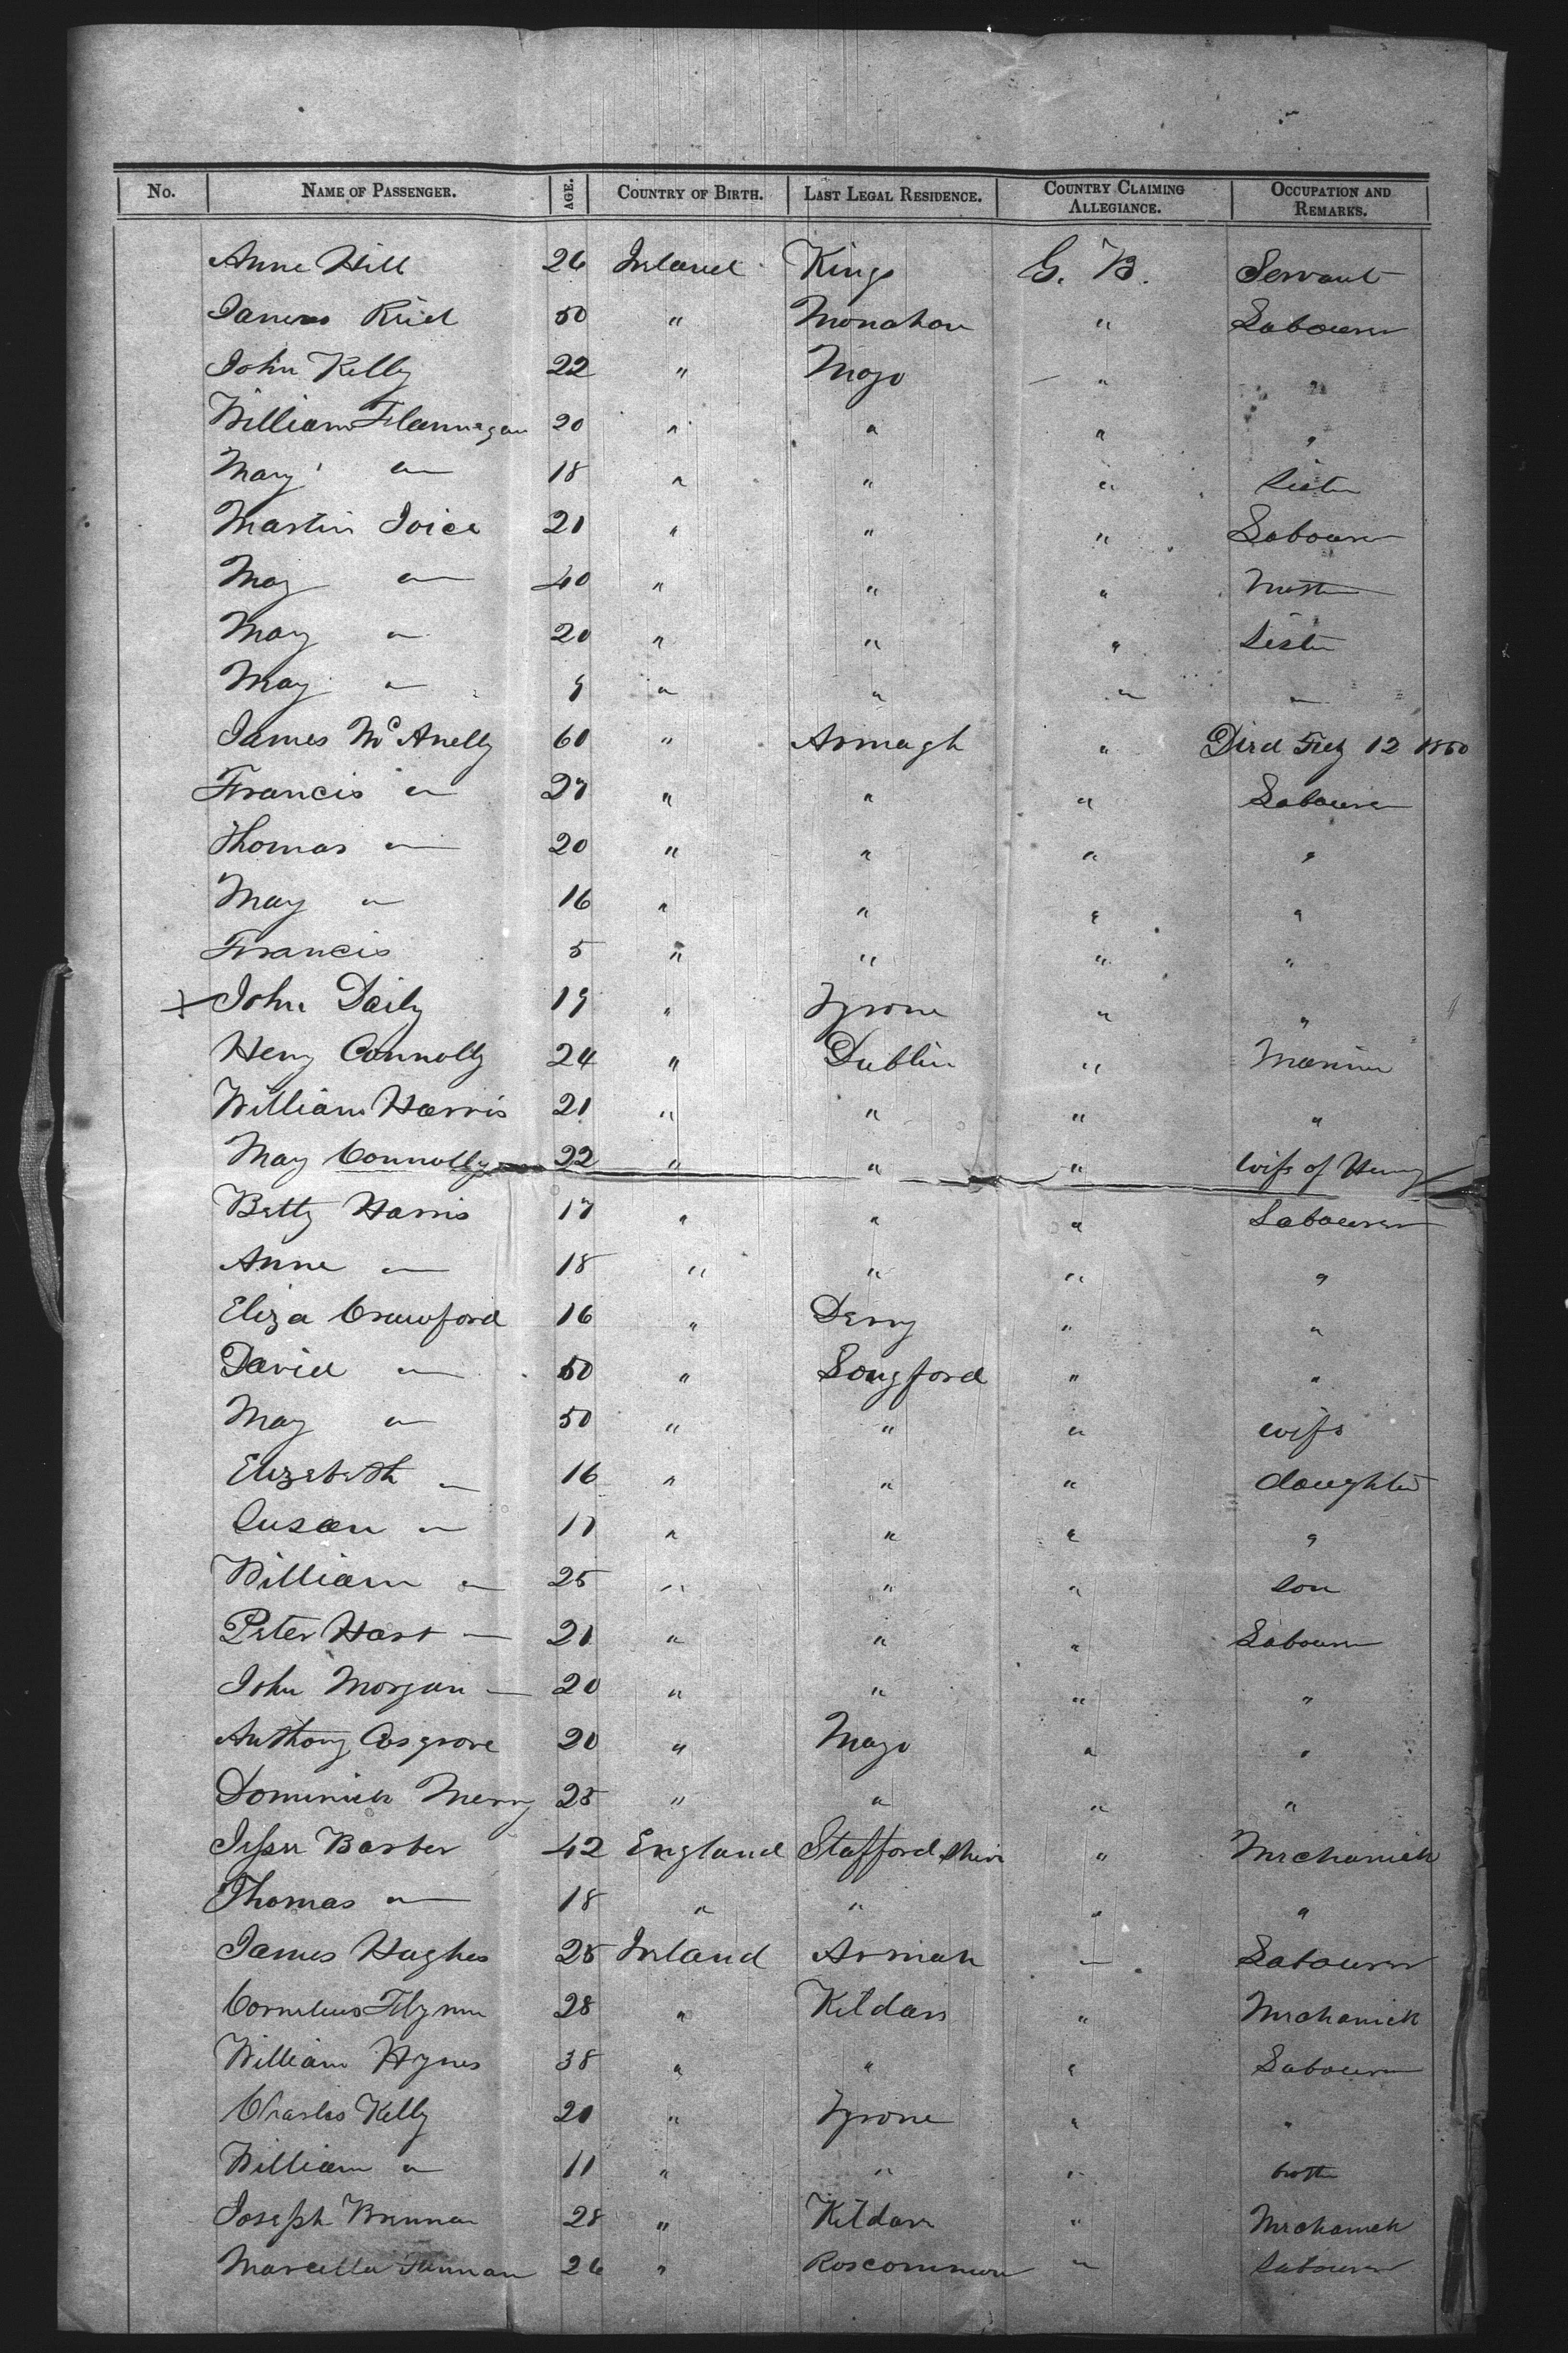 No. NAME OF PASSENGER. AGE. COUNTRY OF BIRTH. LAST LEGAL RESIDENCE. COUNTRY CLAIMING ALLEGIANCE. OCCUPATION AND REMARKS.
Anne Hill 26 Ireland Kings G. B. Servant
James Reid 50 " Monahan " Labourer
John Kelly 22 " Mayo " "
William Flannagan 20 " " " "
Mary " 18 " " " Sister
Martin Joice 21 " " " Labourer
May " 40 " " " Mother
May " 20 " " " Sister
May " 9 " " " "
James McAnelly 60 " Armagh " Died Feby 12 1860
Francis " 27 " " " Labourer
Thomas " 20 " " " "
May " 16 " " " "
Francis 5 " " " "
x John Daily 19 " Tyrone " "
Heny Connolly 24 " Dublin " Marine
William Harris 21 " " " "
May Connolly 22 " " " wife of Henry
Betty Harris 17 " " " Labourer
Anne " 18 " " " "
Eliza Crawford 16 " Derry " "
David " 50 " Longford " "
May " 50 " " " wife
Elizabeth " 16 " " " daughter
Susan " 17 " " " "
William " 25 " " " son
Peter Hart — 21 " " " Labourer
John Morgan — 20 " " " "
Anthony Cosgrove 20 " Mayo " "
Dominick Merry 25 " " " "
Barber 42 England Staffordshire " Mechanick
Thomas " 18 " " " "
James Hughes 25 Ireland Armah " Labourer
Cornelius Flynn 28 " Kildare " Mechanick
William Hynes 38 " " " Labourer
Charles Kelly 21 " Tyrone " "
William " 11 " " " brother
Joseph Brennan 28 " Kildare " Mechanick
Marcella 26 " Roscommon " Labourer